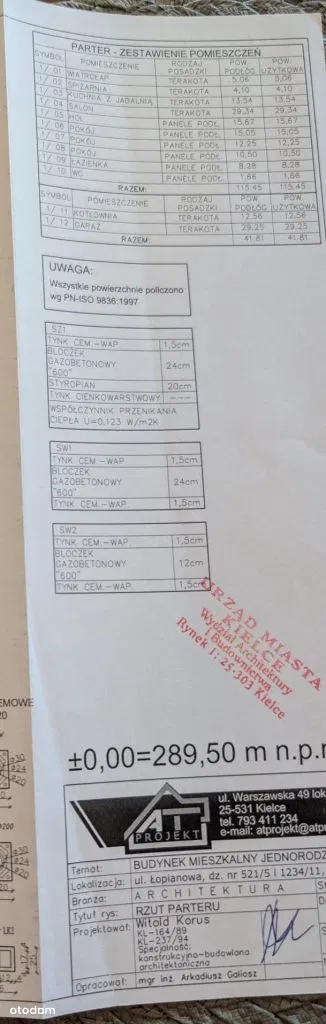 PARTER - ZESTAWIENIE POMIESZCZEŃ
SYMBOL POMIESZCZENIE RODZAJ POSADZKI POW. PODŁÓG POW. UŻYTKOWA
1/ 01 WIATROŁAP TERAKOTA 5,06 5,06
1/ 02 SPIŻARNIA TERAKOTA 4,10 4,10
1/ 03 KUCHNIA Z JADALNIĄ TERAKOTA 13,54 13,54
1/ 04 SALON TERAKOTA 29,34 29,34
1/ 05 HOL PANELE PODŁ. 15,67 15,67
1/ 06 POKÓJ PANELE PODŁ. 15,05 15,05
1/ 07 POKÓJ PANELE PODŁ. 12,25 12,25
1/ 08 POKÓJ PANELE PODŁ. 10,50 10,50
1/ 09 ŁAZIENKA PANELE PODŁ. 8,28 8,28
1/ 10 WC PANELE PODŁ. 1,66 1,66
RAZEM: 115,45 115,45
SYMBOL POMIESZCZENIE RODZAJ POSADZKI POW. PODŁÓG POW. UŻYTKOWA
1/ 11 KOTŁOWNIA TERAKOTA 12,56 12,56
1/ 12 GARAŻ TERAKOTA 29,25 29,25
RAZEM: 41,81 41,81
UWAGA:
Wszystkie powierzchnie policzono
wg PN-ISO 9836:1997
SZ1
TYNK CEM.-WAP. 1,5cm
BLOCZEK
GAZOBETONOWY 24cm
"600"
STYROPIAN 20cm
TYNK CIENKOWARSTWOWY ---
WSPÓŁCZYNNIK PRZENIKANIA
CIEPŁA U=0,123 W/m2K
SW1
TYNK CEM.-WAP. 1,5cm
BLOCZEK
GAZOBETONOWY 24cm
"600"
TYNK CEM.-WAP. 1,5cm
SW2
TYNK CEM.-WAP. 1,5cm
BLOCZEK
GAZOBETONOWY 12cm
"600"
TYNK CEM.-WAP. 1,5cm
URZĄD MIASTA
KIELCE
Wydział Architektury
i Budownictwa
Rynek 1; 25-303 Kielce
±0,00=289,50 m n.p.
AT
PROJEKT
ul. Warszawska 49 lok
25-531 Kielce
tel. 793 411 234
e-mail: atprojekt@atp
Temat: BUDYNEK MIESZKALNY JEDNOROD
Lokalizacja: ul. Łopianowa, dz. nr 521/5 i 1234/11,
Branża: ARCHITEKTURA
Tytuł rys: RZUT PARTERU
Projektował: Witold Korus
KL-164/89
KL-237/94
Specjalność:
konstrukcyjno-budowlana
architektoniczna
Opracował: mgr inż. Arkadiusz Galiosz
otodom